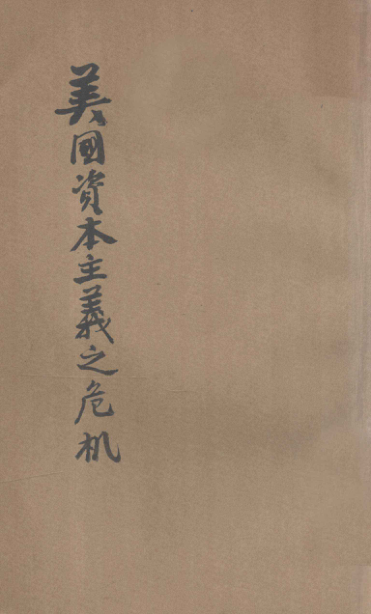 美國資本主義之危机